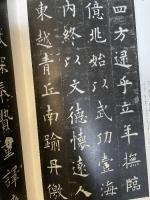 四方遝乎立年撫臨
億兆始以武功壹海
内終以文德懷遠人
東越青丘南踰丹儌